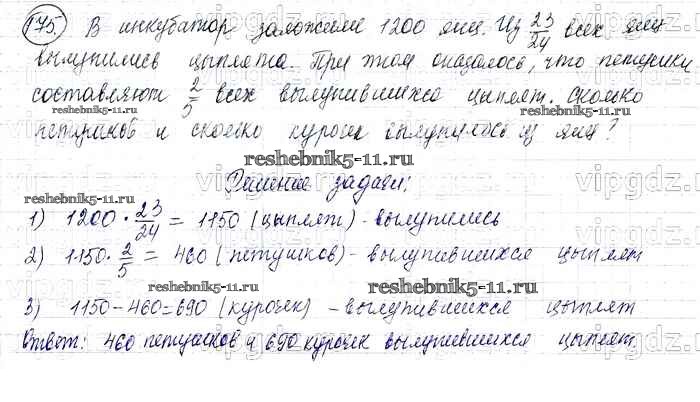 175. В инкубатор заложили 1200 яиц. Из 23/24 всех яиц
вылупились цыплята. При этом оказалось, что петушки
составляют 2/5 всех вылупившихся цыплят. Сколько
петушков и сколько курочек вылупилось из яиц?
reshebnik5-11.ru
reshebnik5-11.ru
reshebnik5-11.ru
Решение задачи:
reshebnik5-11.ru
1) 1200 · 23/24 = 1150 (цыплят) - вылупились
2) 1150 · 2/5 = 460 (петушков) - вылупившихся цыплят
reshebnik5-11.ru
reshebnik5-11.ru
3) 1150 - 460 = 690 (курочек) - вылупившихся цыплят
Ответ: 460 петушков и 690 курочек вылупившихся цыплят.